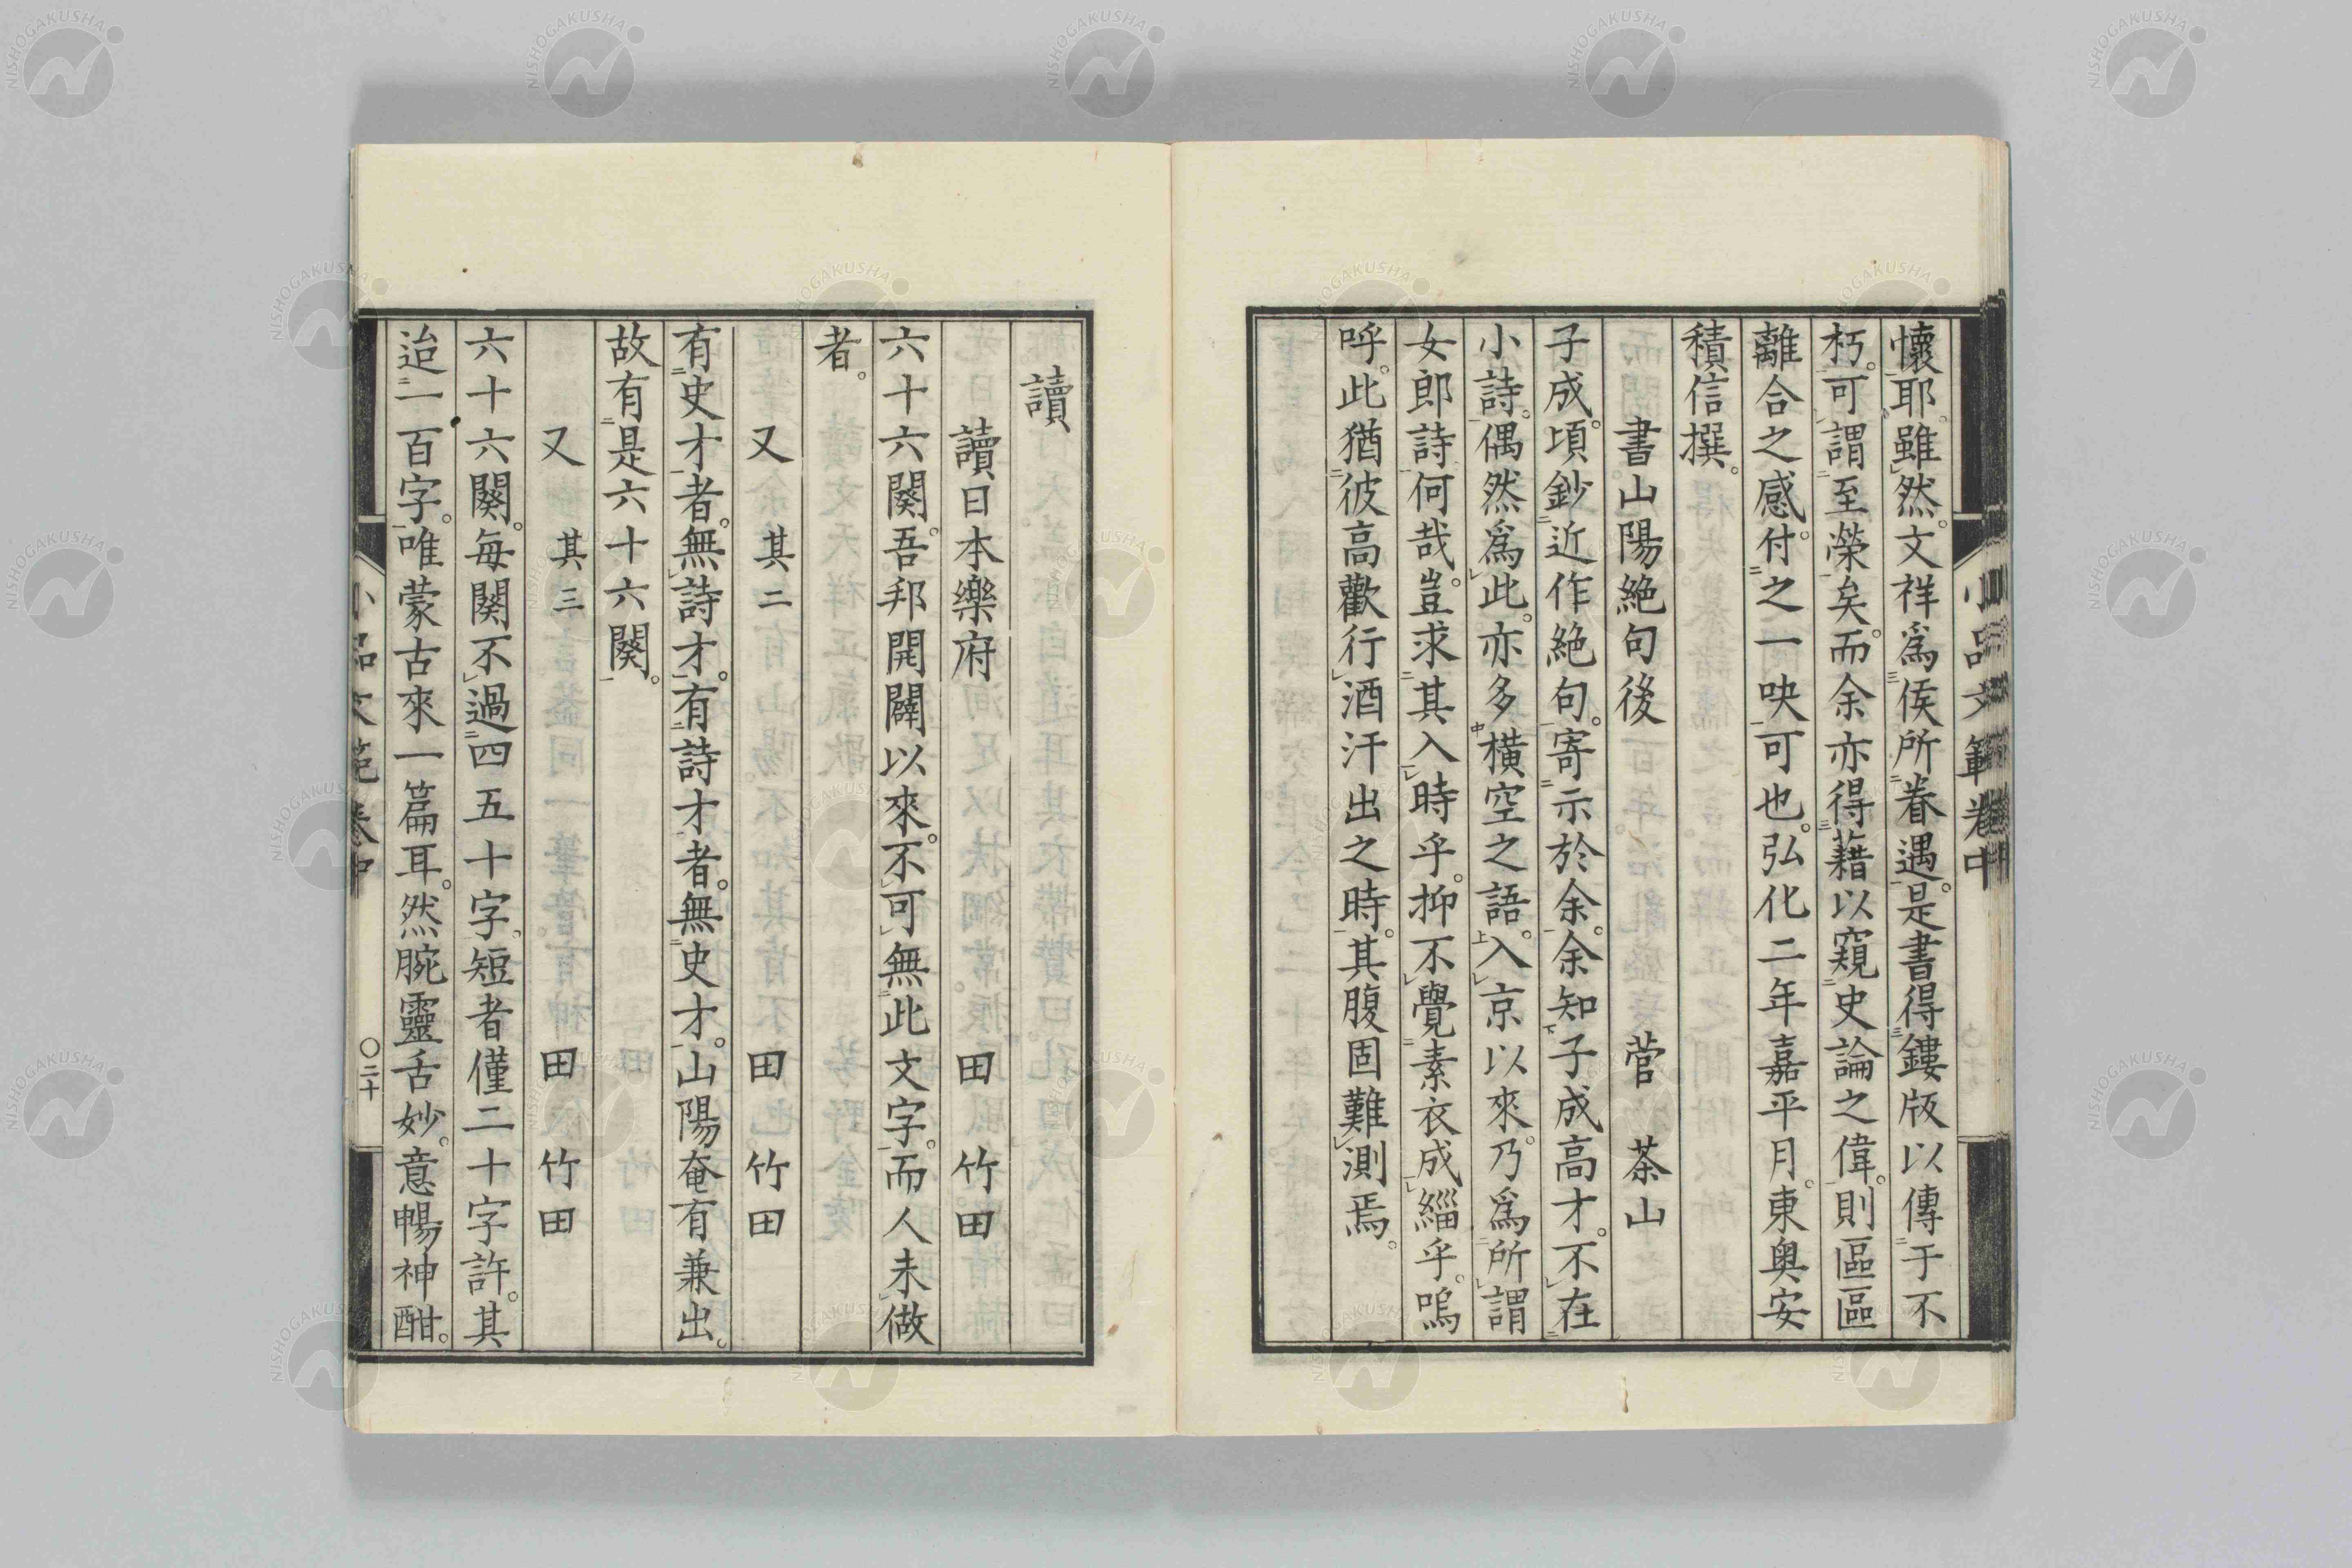 小品文範卷中
懷耶。雖然。文祥爲侯所眷遇。是書得鏤版以傳于不
朽。可謂至榮矣。而余亦得藉以窺史論之偉。則區區
離合之感。付之一吷可也。弘化二年嘉平月。東奧安
積信撰。
書山陽絶句後 菅茶山
子成。頃鈔近作絶句。寄示於余。余知子成高才。不在
小詩。偶然爲此。亦多橫空之語。入京以來。乃爲所謂
女郎詩何哉。豈求其入時乎。抑不覺素衣成緇乎。嗚
呼。此猶彼高歡行酒汗出之時。其腹固難測焉。
讀
讀日本樂府 田竹田
六十六闋。吾邦開闢以來。不可無此文字。而人未做
者。
又 其二 田竹田
有史才者。無詩才。有詩才者。無史才。山陽奄有兼出。
故有是六十六闋。
又 其三 田竹田
六十六闋。每闋不過四五十字。短者僅二十字許。其
迨一百字。唯蒙古來一篇耳。然腕靈舌妙。意暢神酣。
小品文範卷中 〇二十
NISHOGAKUSHA